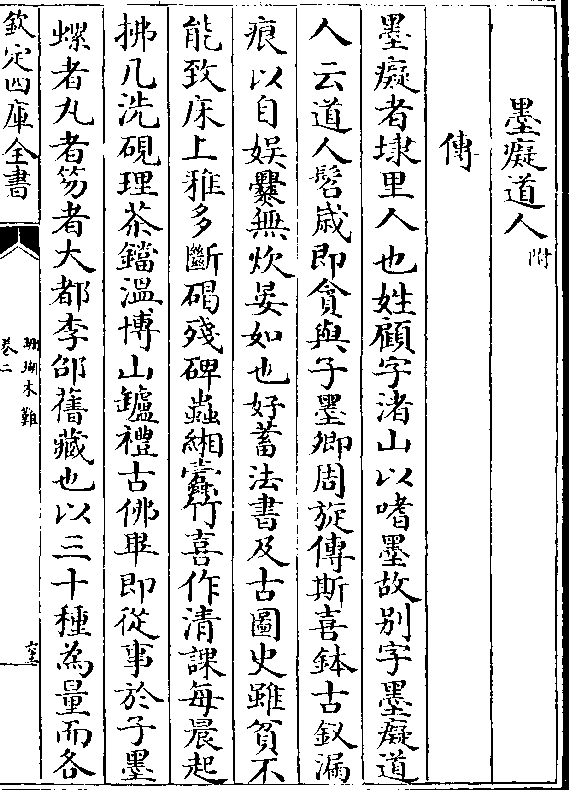 墨癡道人附
傳
墨癡者埭里人也姓顧字渚山以嗜墨故别字墨癡道
人云道人髫嵗即貧與子墨卿周旋傳斯喜鉢古釵漏
痕以自娯爨無炊晏如也好蓄法書及古圖史雖貧不
能致床上雅多斷碣殘碑蟲緗蠧竹喜作清課每晨起
拂几洗硯理茶鐺溫博山鑪禮古佛畢即從事於子墨
螺者丸者笏者大都李邵舊藏也以三十種為量而各
欽定四庫全書
珊瑚木難
卷二